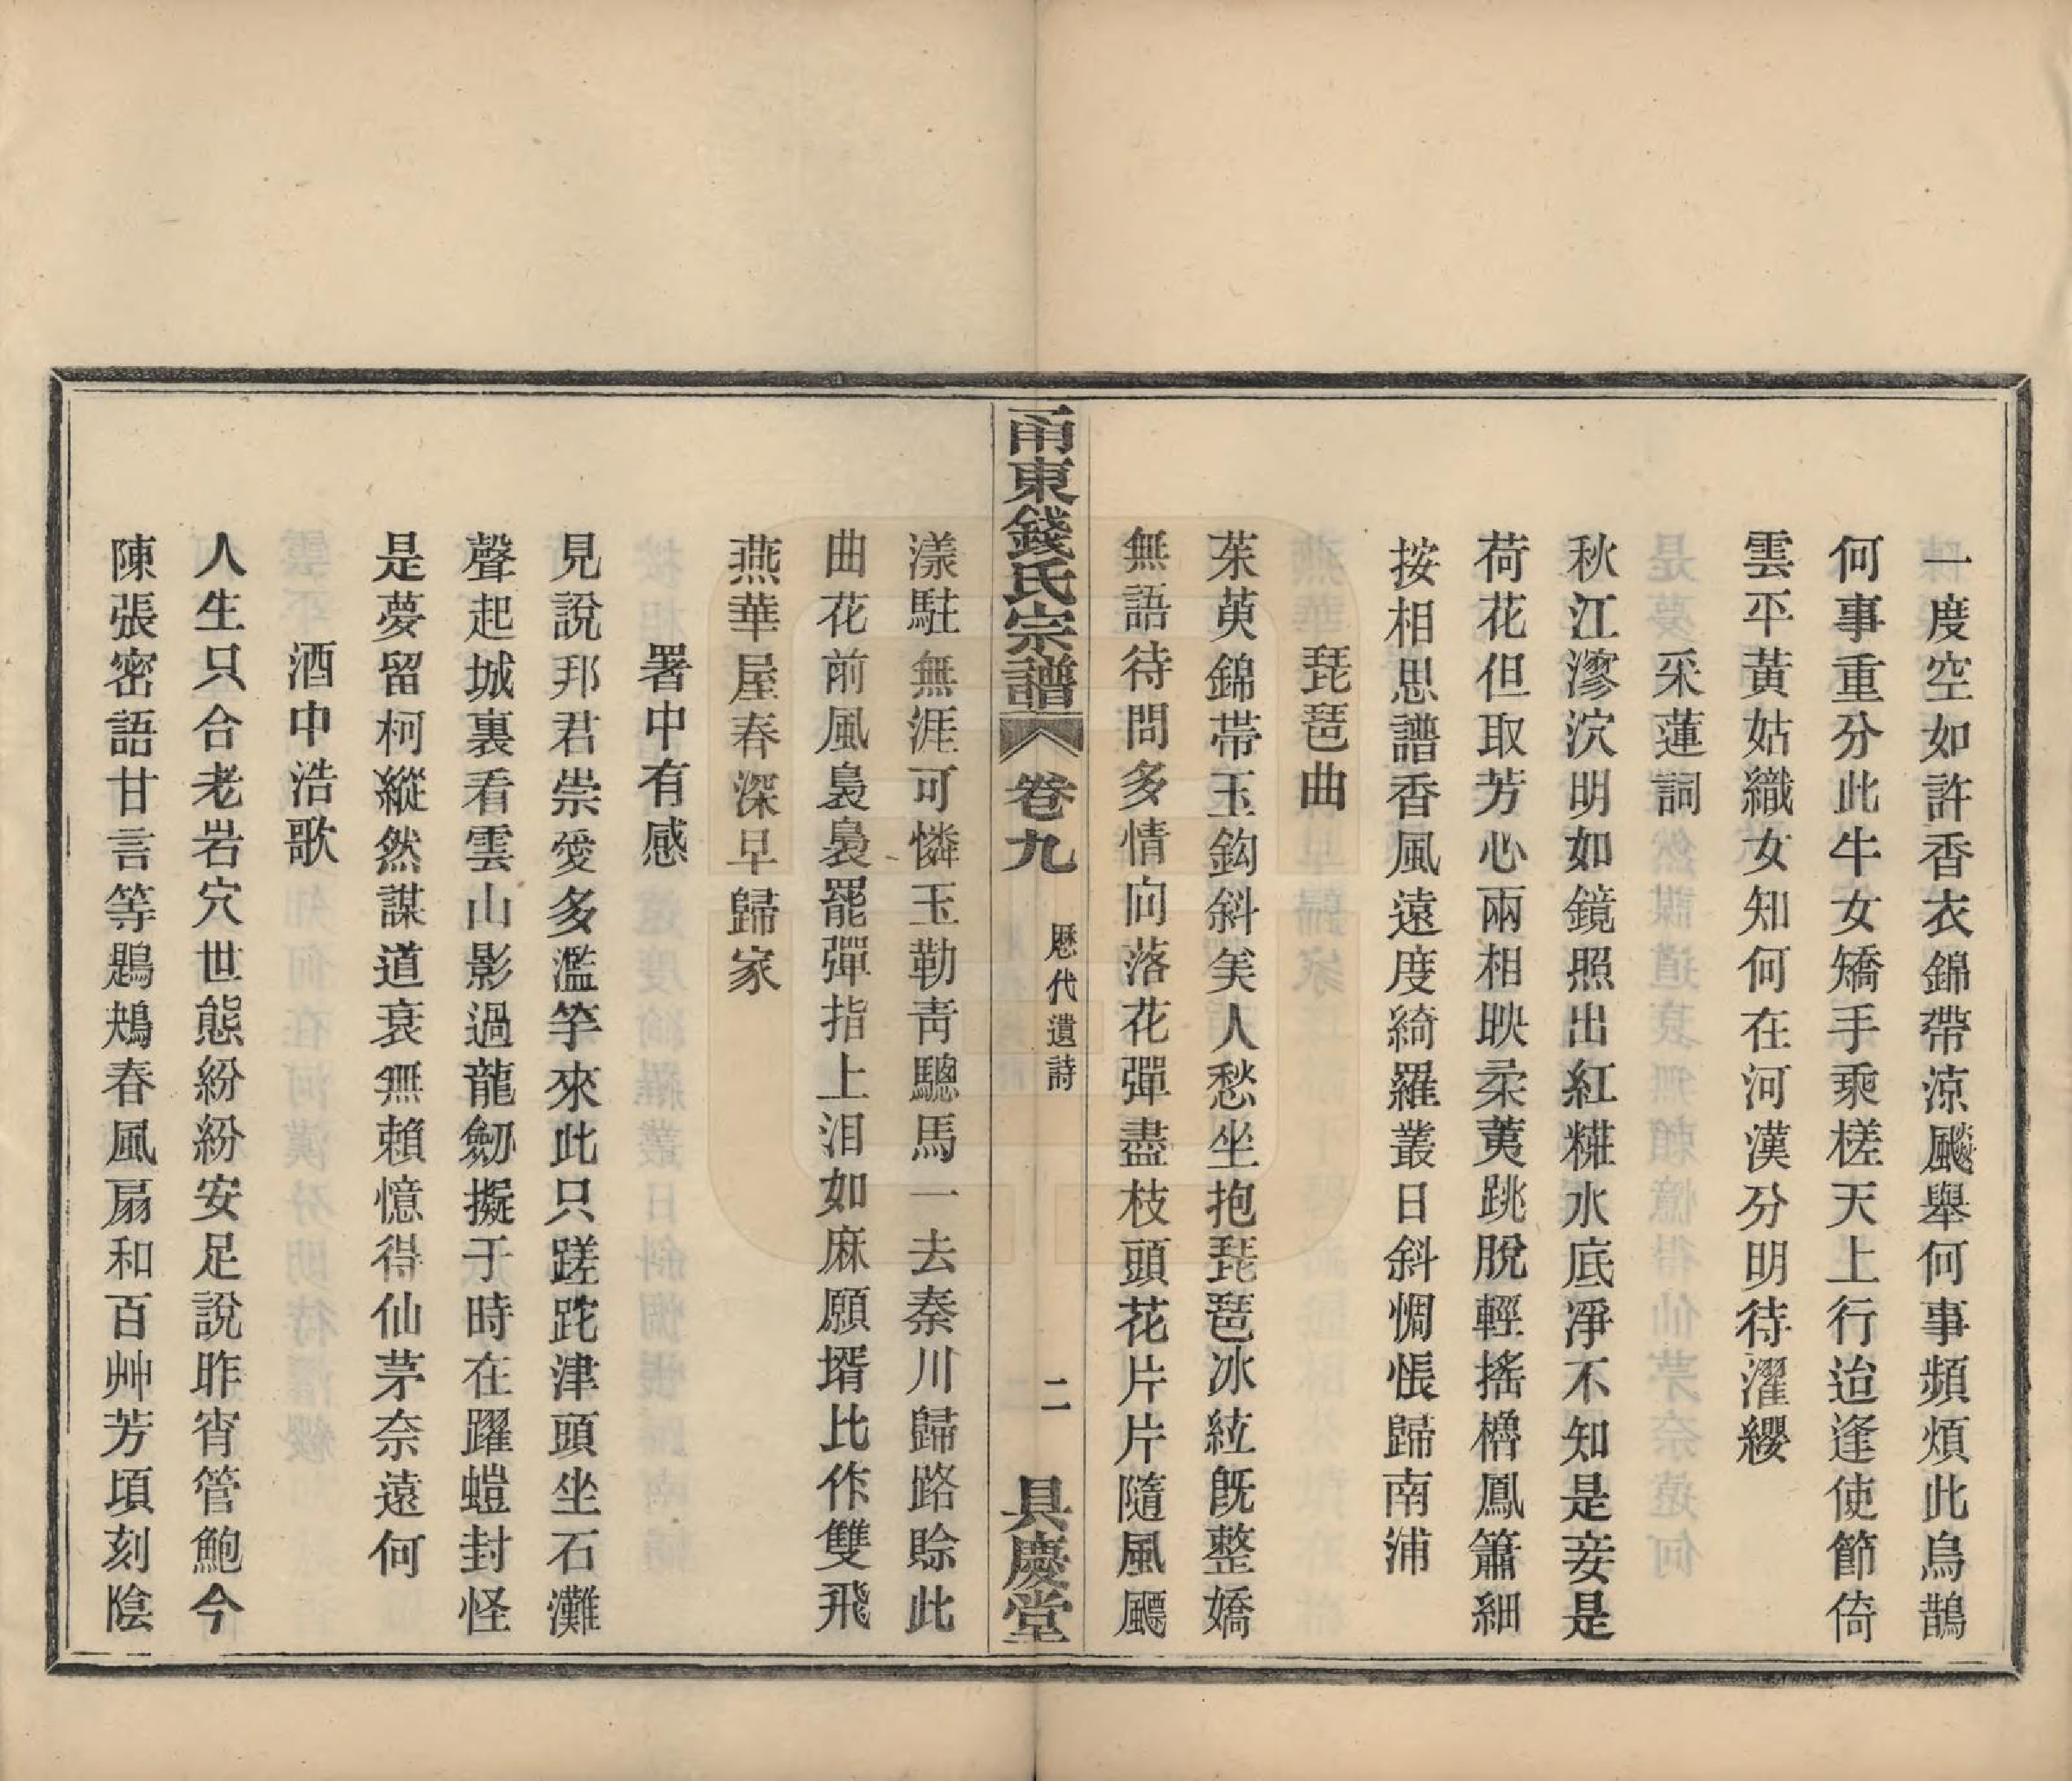 一度空如許香衣錦帶涼飈舉何事頻煩此烏鵲
何事重分此牛女矯手乘槎天上行迨逢使節倚
雲平黃姑織女知何在河漢分明待濯纓
采蓮詞
秋江漻泬明如鏡照出紅糚水底凈不知是妾是
荷花但取芳心兩相映柔荑跳脫輕搖櫓鳳簫細
按相思譜香風遠度綺羅叢日斜惆悵歸南浦
琵琶曲
茱萸錦帶玉鈎斜美人愁坐抱琵琶冰絃旣整嬌
無語待問多情向落花彈盡枝頭花片片隨風颺
甬東錢氏宗譜 卷九 歷代遺詩 二 具慶堂
漾駐無涯可憐玉勒靑驄馬一去秦川歸路賒此
曲花前風裊裊罷彈指上泪如麻願壻比作雙飛
燕華屋春深早歸家
署中有感
見說邦君崇愛多濫竽來此只蹉跎津頭坐石灘
聲起城裏看雲山影過龍劒擬于時在躍螘封怪
是夢留柯縱然謀道衰無賴憶得仙茅奈遠何
酒中浩歌
人生只合老岩穴世態紛紛安足說昨宵管鮑今
陳張密語甘言等鶗鴂春風扇和百艸芳頃刻陰